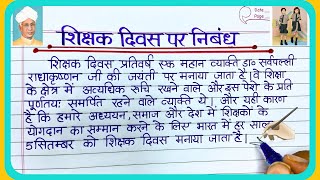 Date
Page
शिक्षक दिवस पर निबंध
शिक्षक दिवस, प्रतिवर्ष एक महान व्यक्ति डा॰ सर्वपल्ली
राधाकृष्णन जी की जयंती पर मनाया जाता है। वे शिक्षा
के क्षेत्र में अत्यधिक रुचि रखने वाले और इस पेशे के प्रति
पूर्णतयः समर्पित रहने वाले व्यक्ति थे। और यही कारण
है कि हमारे अध्ययन, समाज और देश में शिक्षकों के
योगदान का सम्मान करने के लिए भारत में हर साल
5 सितम्बर को शिक्षक दिवस मनाया जाता है।